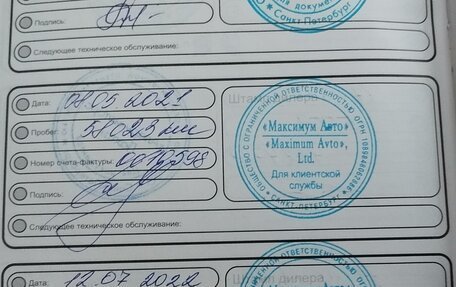 Подпись:
Следующее техническое обслуживание:
для документов
Санкт-Петербург
Дата: 08.05.2021
Пробег: 58023 км
Номер счета-фактуры: 0013598
Подпись:
Следующее техническое обслуживание:
Штамп дилера
ОБЩЕСТВО С ОГРАНИЧЕННОЙ ОТВЕТСТВЕННОСТЬЮ
«Максимум Авто»
«Maximum Avto»,
Ltd.
Для клиентской
службы
САНКТ-ПЕТЕРБУРГ
Дата: 12.07 2022
Штамп дилера